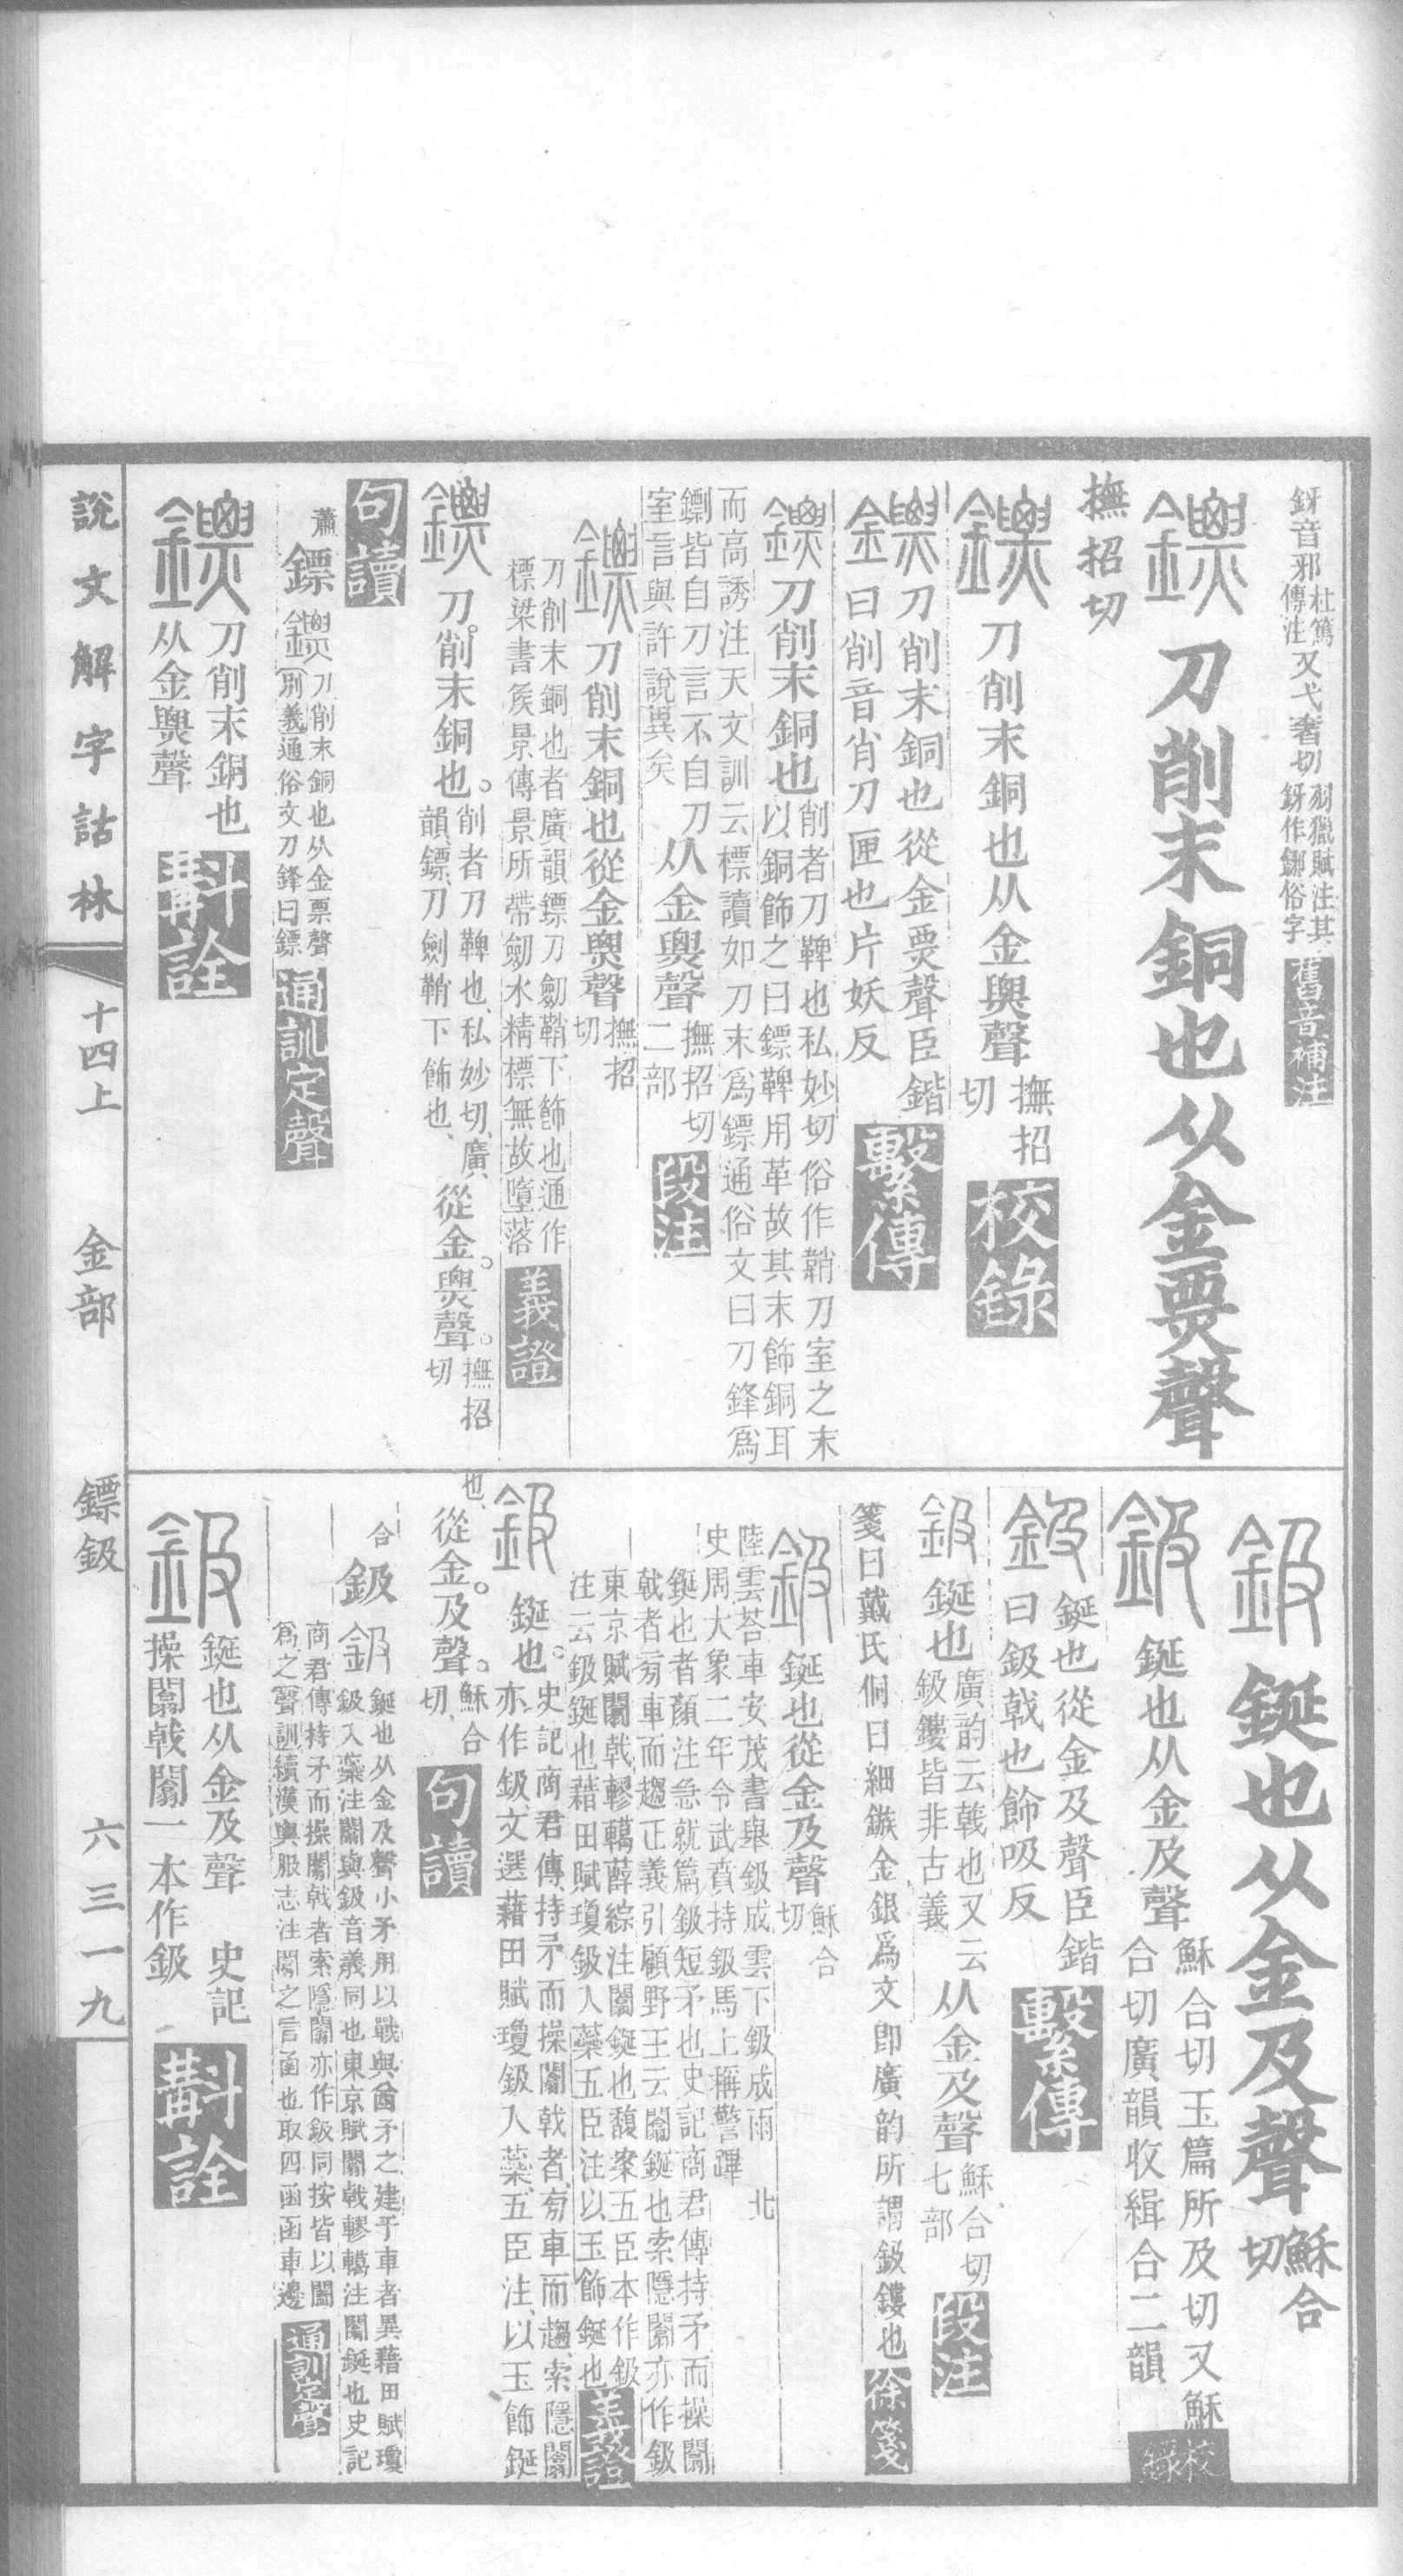 釾音邪杜篤傳注又弋奢切羽獵賦注其釾作鋣俗字舊音補注
鏢刀削末銅也从金票聲
撫招切
鏢刀削末銅也从金𤐫聲撫招切校錄
鏢刀削末銅也從金票聲臣鍇
曰削音肖刀匣也片妖反繫傳
鏢刀削末銅也削者刀鞞也私妙切俗作鞘刀室之末
以銅飾之曰鏢鞞用革故其末飾銅耳
而高誘注天文訓云標讀如刀末爲鏢通俗文曰刀鋒爲
鏢皆自刀言不自刀
室言與許說異矣从金𤐫聲撫招切二部段注
鏢刀削末銅也從金𤐫聲撫招切
刀削末銅也者廣韻鏢刀劒鞘下飾也通作
標梁書侯景傳景所帶劒水精標無故墮落義證
鏢刀削末銅也削者刀鞞也私妙切廣
韻鏢刀劒鞘下飾也從金𤐫聲撫招切
句讀
蕭鏢鏢刀削末銅也从金票聲
別義通俗文刀鋒曰鏢通訓定聲
鏢刀削末銅也
从金𤐫聲斠詮
鈒鋋也从金及聲穌合切
鈒鋋也从金及聲穌合切玉篇所及切又穌
合切廣韻收緝合二韻校錄
鈒鋋也從金及聲臣鍇
曰鈒戟也飾吸反繫傳
鈒鋋也廣韵云戟也又云
鈒鏤皆非古義从金及聲穌合切七部段注
箋曰戴氏侗曰細鏃金銀爲文卽廣韵所謂鈒鏤也徐箋
鈒鋋也從金及聲穌合切
陸雲荅車安茂書舉鈒成雲下鈒成雨北
史周大象二年令武賁持鈒馬上稱警蹕
鋋也者顏注急就篇鈒短矛也史記商君傳持矛而操闟
戟者㫄車而趨正義引顧野王云闟鋋也索隱闟亦作鈒
東京賦闟戟轇轕薛綜注闟鋋也馥案五臣本作鈒
注云鈒鋋也藉田賦瓊鈒入蘂五臣注以玉飾鋋也義證
鈒鋋也史記商君傳持矛而操闟戟者㫄車而趨索隱闟
亦作鈒文選藉田賦瓊鈒入蘂五臣注以玉飾鋋
也從金及聲穌合切句讀
合鈒鈒鋋也从金及聲小矛用以戰與酋矛之建于車者異藉田賦瓊
鈒入蘂注闟與鈒音義同也東京賦闟戟轇轕注闟鋋也史記
商君傳持矛而操闟戟者索隱闟亦作鈒同按皆以闟
爲之聲訓續漢輿服志注闟之言函也取四函函車邊通訓定聲
鈒鋋也从金及聲史記
操闟戟闟一本作鈒斠詮
說文解字詁林十四上金部鏢鈒六三一九